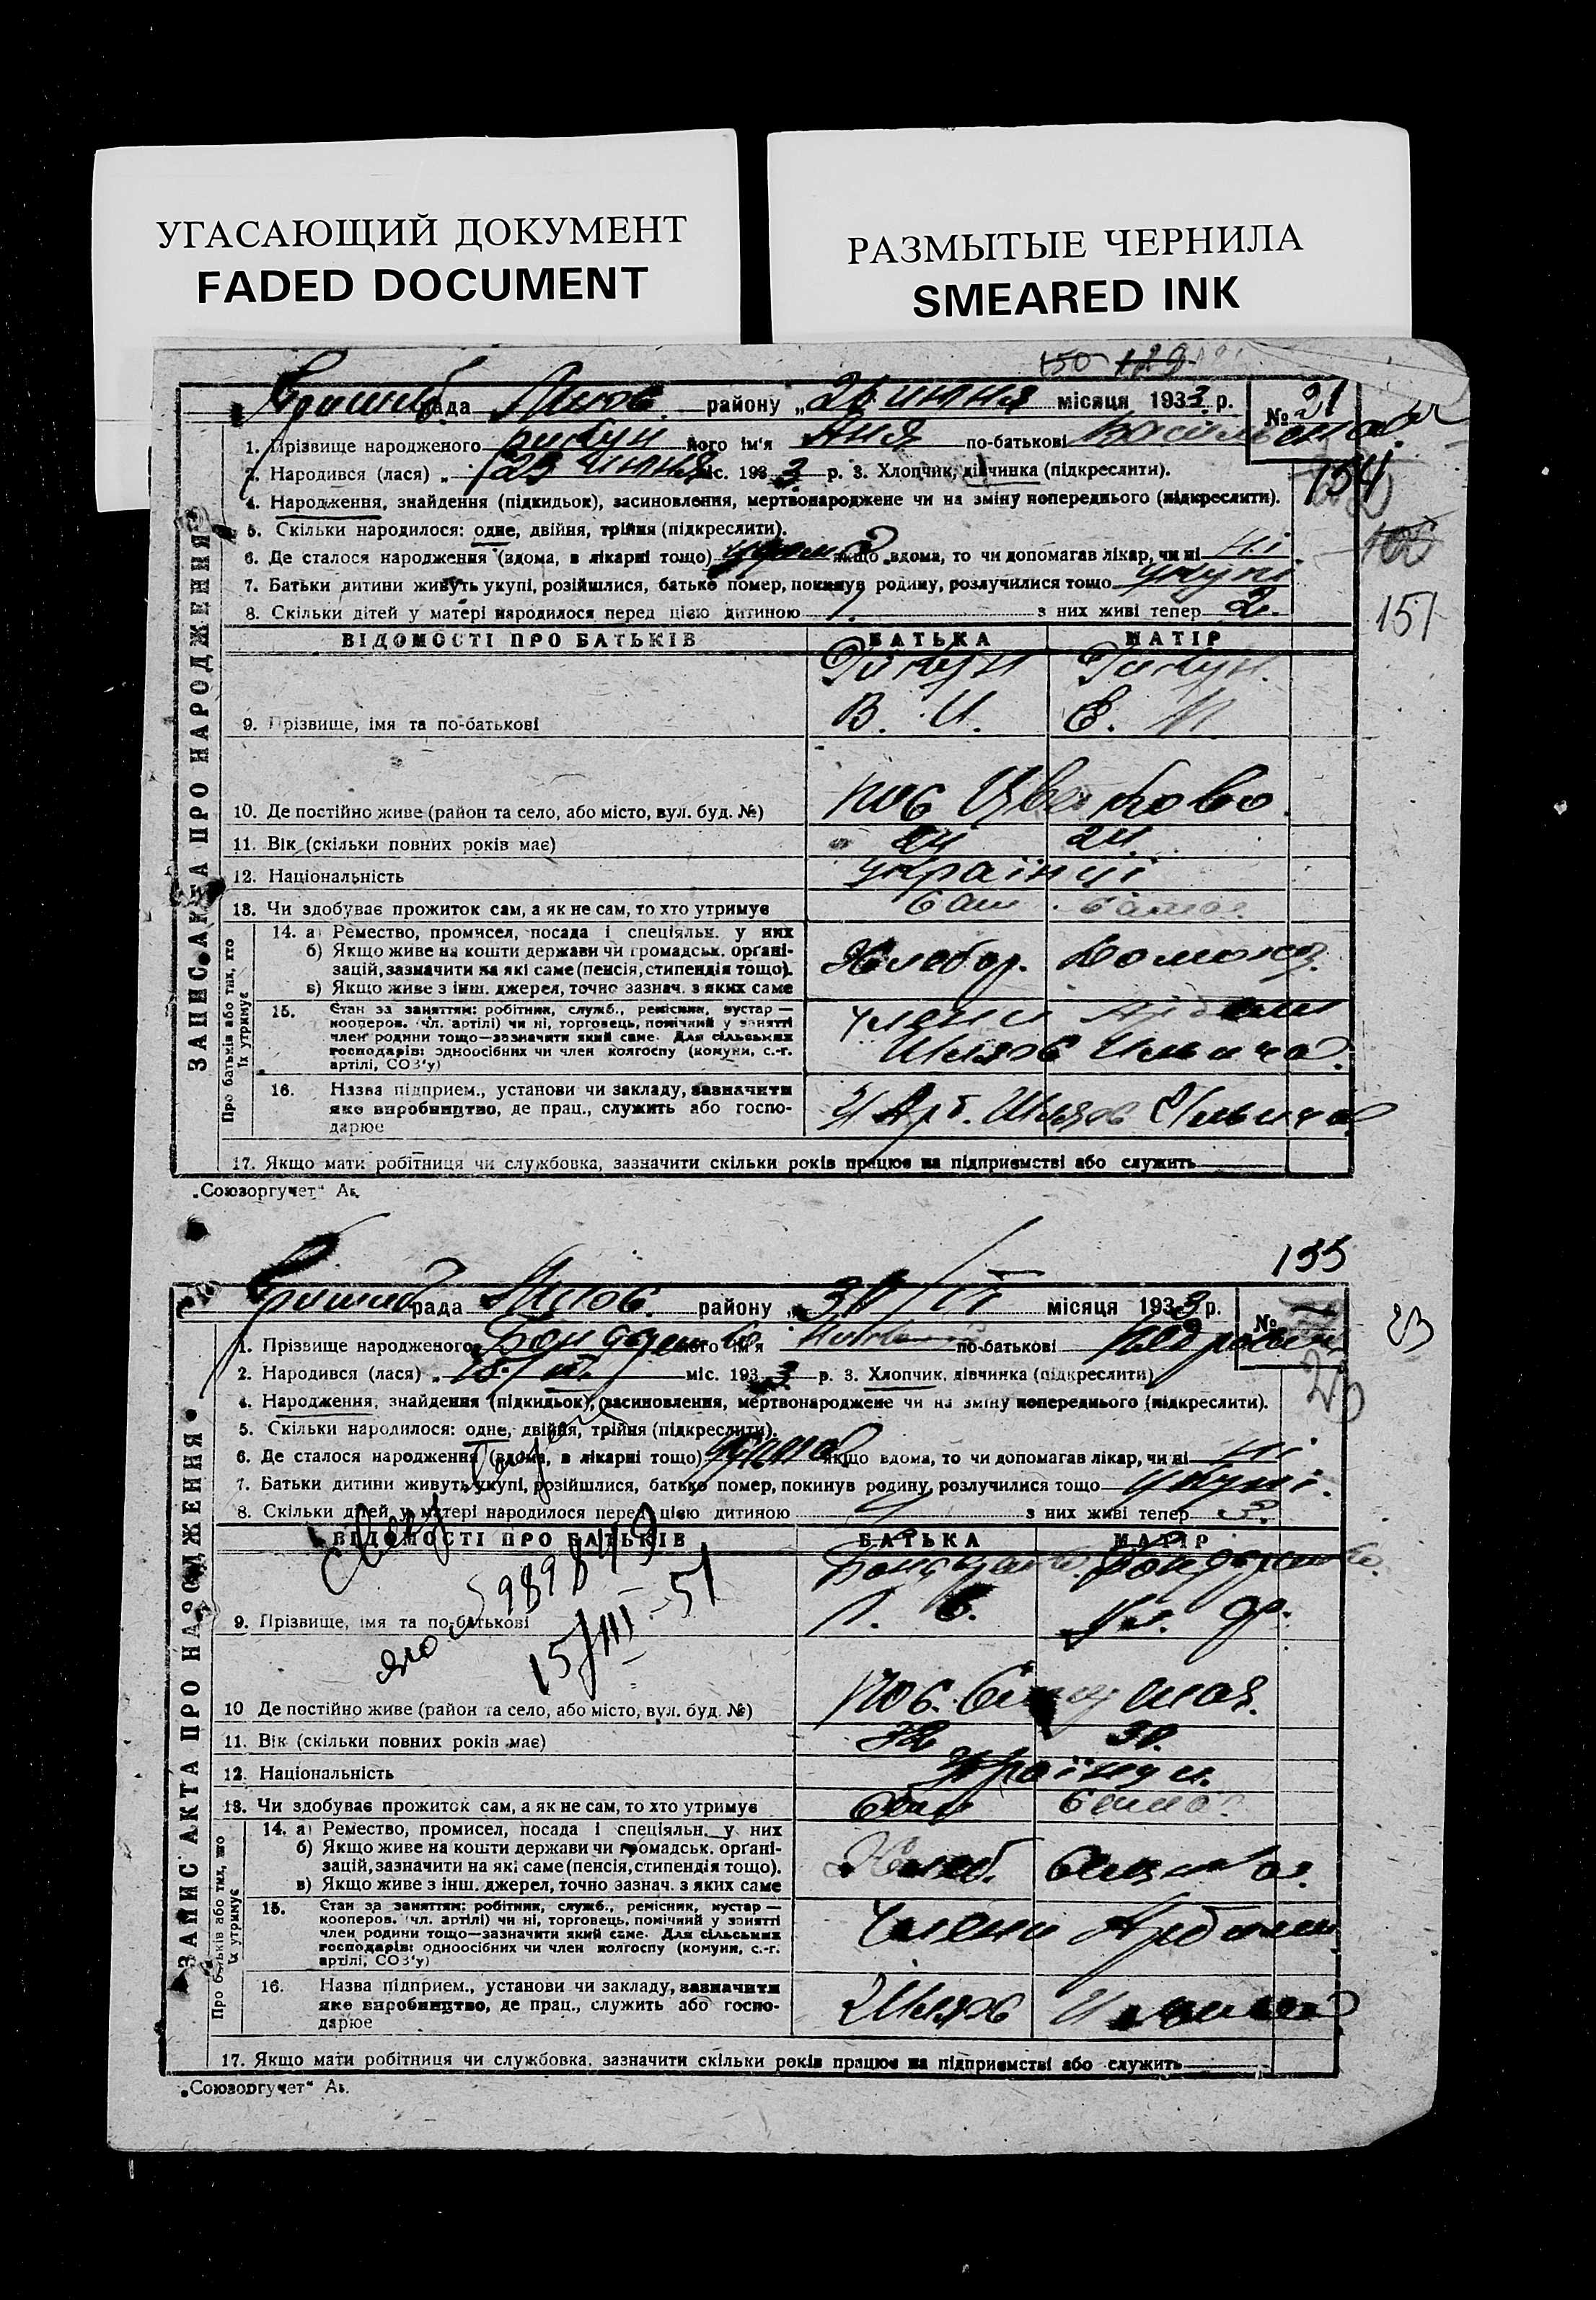 УГАСАЮЩИЙ ДОКУМЕНТ
FADED DOCUMENT
РАЗМЫТЫЕ ЧЕРНИЛА
SMEARED INK
150 129
рада району „ июня місяця 1933 р. № 21
1. Прізвище народженого його ім'я Аня по-батькові
2. Народився (лася) „ 23 июня міс. 1933 р. 3. Хлопчик, дівчинка (підкреслити).
154
4. Народження, знайдення (підкидьок), засиновлення, мертвонароджене чи на зміну попереднього (підкреслити).
5. Скільки народилося: одне, двійня, трійня (підкреслити).
6. Де сталося народження (вдома, в лікарні тощо) якщо вдома, то чи допомагав лікар, чи ні ні
7. Батьки дитини живуть укупі, розійшлися, батько помер, покинув родину, розлучилися тощо укупі
8. Скільки дітей у матері народилося перед цією дитиною 1. з них живі тепер 2.
151
ВІДОМОСТІ ПРО БАТЬКІВ БАТЬКА МАТІР
9. Прізвище, імя та по-батькові В. И. Е.
10. Де постійно живе (район та село, або місто, вул. буд. №) пос
11. Вік (скільки повних років має) 24 24
12. Національність українці
13. Чи здобуває прожиток сам, а як не сам, то хто утримує сам. сама.
14. а) Ремество, промисел, посада і спеціяльн. у них
б) Якщо живе на кошти держави чи громадськ. органі-
зацій, зазначити на які саме (пенсія, стипендія тощо).
в) Якщо живе з інш. джерел, точно зазнач. з яких саме
Хлебор. Домохоз.
15. Стан за заняттям: робітник, служб., ремісник, кустар —
кооперов. (чл. артілі) чи ні, торговець, помічний у занятті
член родини тощо—зазначити який саме. Для сільських
господарів: одноосібних чи член колгоспу (комуни, с.-г.
артілі, СОЗ'у)
члени Артели
Шлях Ильича
16. Назва підприєм., установи чи закладу, зазначити
яке виробництво, де прац., служить або госпо-
дарює
Арт. Шлях Ильича
17. Якщо мати робітниця чи службовка, зазначити скільки років працює на підприємстві або служить
Про батьків або тих, хто їх утримує
ЗАПИС АКТА ПРО НАРОДЖЕННЯ
„Союзоргучет“ Ак.
155
рада району „ місяця 1933 р. №
23
1. Прізвище народженого Бондаренко його ім'я по-батькові
2. Народився (лася) „ міс. 1933 р. 3. Хлопчик, дівчинка (підкреслити)
4. Народження, знайдення (підкидьок), засиновлення, мертвонароджене чи на зміну попереднього (підкреслити).
5. Скільки народилося: одне, двійня, трійня (підкреслити).
6. Де сталося народження (вдома, в лікарні тощо) якщо вдома, то чи допомагав лікар, чи ні ні
7. Батьки дитини живуть укупі, розійшлися, батько помер, покинув родину, розлучилися тощо укупі.
8. Скільки дітей у матері народилося перед цією дитиною з них живі тепер 3.
ВІДОМОСТІ ПРО БАТЬКІВ БАТЬКА МАТІР
Бондаренко. Бондаренко.
9. Прізвище, імя та по-батькові
15/III-51
10 Де постійно живе (район та село, або місто, вул. буд. №) пос.
11. Вік (скільки повних років має) 30.
12. Національність
13. Чи здобуває прожиток сам, а як не сам, то хто утримує сам сама.
14. а) Ремество, промисел, посада і спеціяльн. у них
б) Якщо живе на кошти держави чи громадськ. органі-
зацій, зазначити на які саме (пенсія, стипендія тощо).
в) Якщо живе з інш. джерел, точно зазнач. з яких саме
Хлеб.
15. Стан за заняттям: робітник, служб., ремісник, кустар —
кооперов. (чл. артілі) чи ні, торговець, помічний у занятті
член родини тощо—зазначити який саме. Для сільських
господарів: одноосібних чи член колгоспу (комуни, с.-г.
артілі, СОЗ'у)
члени Артели
16. Назва підприєм., установи чи закладу, зазначити
яке виробництво, де прац., служить або госпо-
дарює
Шлях Ильича
17. Якщо мати робітниця чи службовка, зазначити скільки років працює на підприємстві або служить
Про батьків або тих, що їх утримує
ЗАПИС АКТА ПРО НАРОДЖЕННЯ
„Союзоргучет“ Ак.